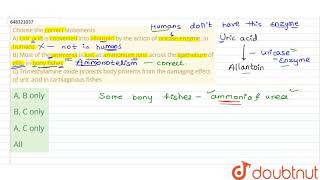 648321037
Humans don't have this enzyme
Choose the correct statements
Uric acid
A) Uric acid is converted into allantoin by the action of uricase enzyme, in
humans X - not in humans
uricase
enzyme
B) Most of the ammonia is lost as ammonium ions across the epithelium of
gills, in bony fishes = Ammonotelism - correct
Allantoin
C) Trimethylamine oxide protects body proteins from the damaging effect
of uric acid in cartilaginous fishes
A, B only
Some bony fishes - ammonia & urea
B, C only
A, C only
All
doubtnut